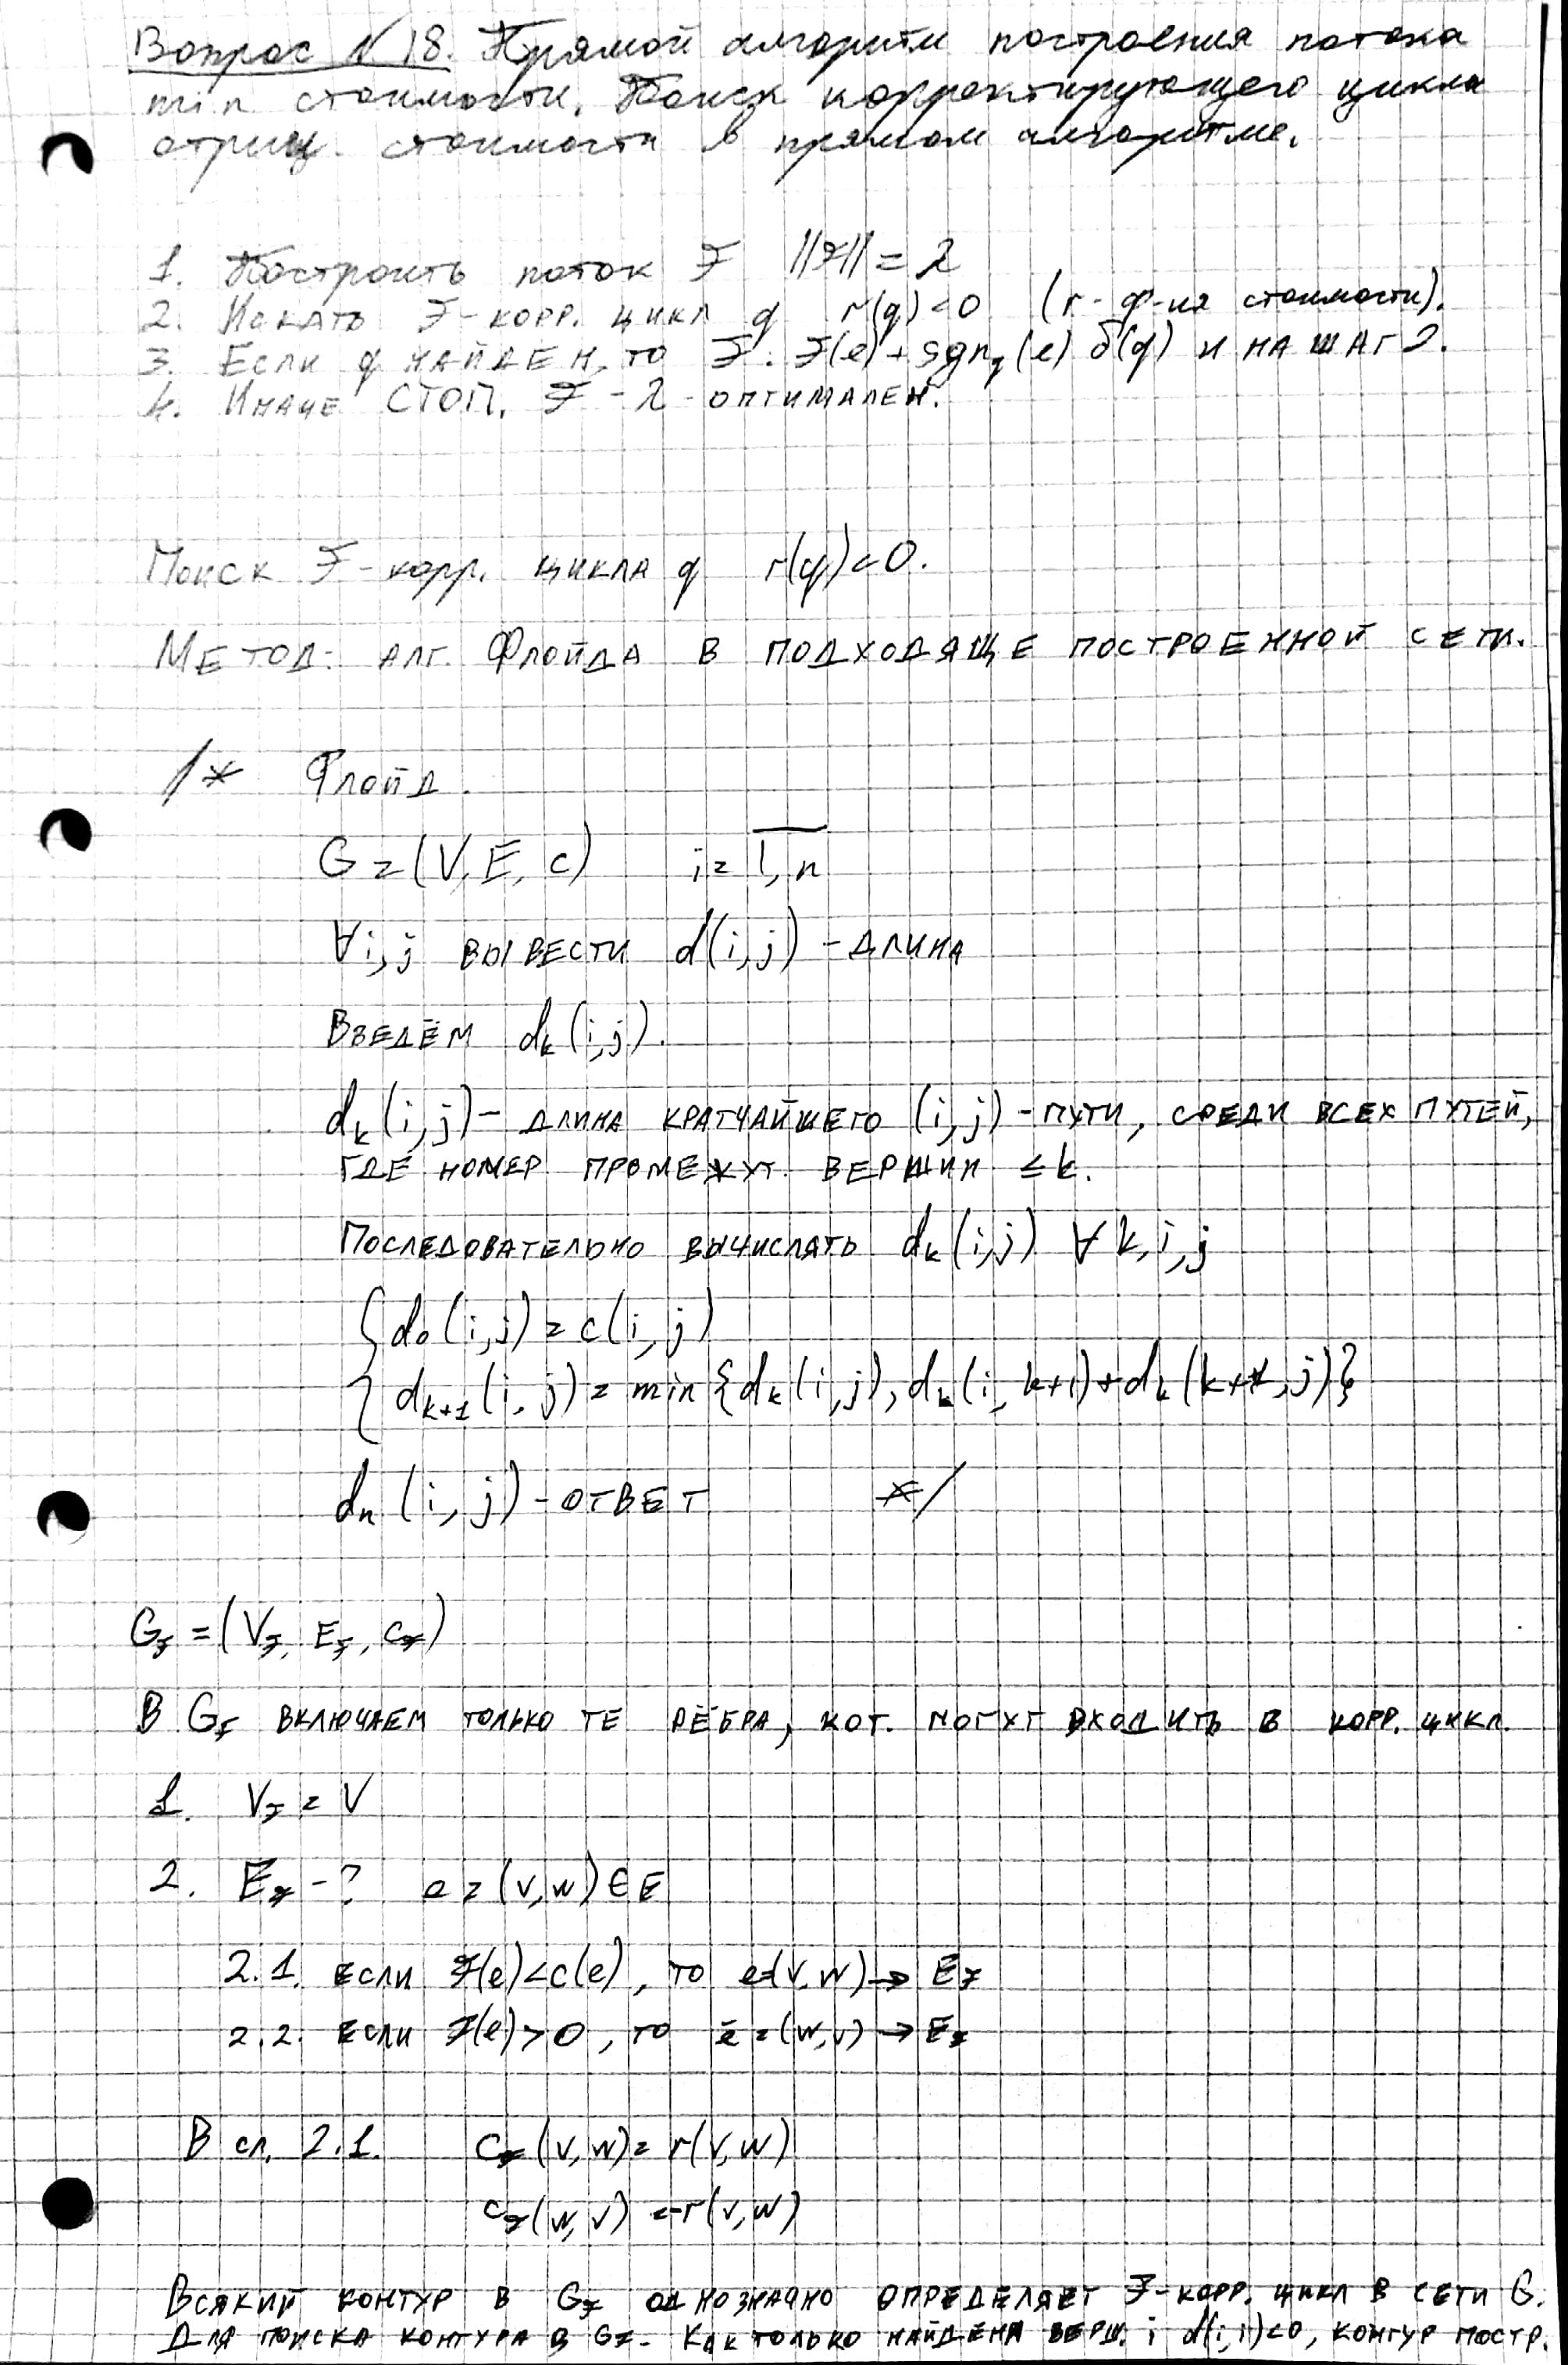 Вопрос №18. Прямой алгоритм построения потока
min стоимости. Поиск корректирующего цикла
отриц. стоимости в прямом алгоритме.
1. Построить поток F ||F|| = λ
2. Искать F-корр. цикл q r(q)<0 (r - ф-ия стоимости).
3. Если q найден, то F: F(e) + sgn_q(e) δ(q) и на шаг 2.
4. Иначе СТОП. F - λ - оптимален.
Поиск F-корр. цикла q r(q)<0.
Метод: алг. Флойда в подходяще построенной сети.
/* Флойд.
G = (V, E, c) i = 1, n
∀i, j вывести d(i, j) - длина
Введём d_k(i, j).
d_k(i, j) - длина кратчайшего (i, j) - пути, среди всех путей,
где номер промежут. вершин ≤ k.
Последовательно вычислять d_k(i, j) ∀ k, i, j
{ d_0(i, j) = c(i, j)
d_{k+1}(i, j) = min {d_k(i, j), d_k(i, k+1) + d_k(k+1, j)}
d_n(i, j) - ответ */
G_F = (V_F, E_F, c_F)
В G_F включаем только те рёбра, кот. могут входить в корр. цикл.
1. V_F = V
2. E_F - ? e = (v, w) ∈ E
2.1. если F(e) < c(e), то e=(v, w) → E_F
2.2. если F(e) > 0, то ē = (w, v) → E_F
В сл. 2.1. c_F(v, w) = r(v, w)
c_F(w, v) = -r(v, w)
Всякий контур в G_F однозначно определяет F-корр. цикл в сети G.
Для поиска контура в G_F - Как только найдена верш. i d(i, i)<0, контур постр.